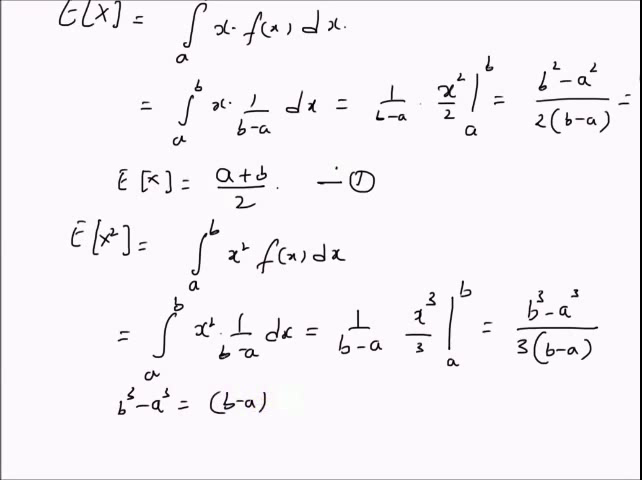 E[X] = ∫ₐ x· f(x) dx.
= ∫ₐᵇ x· 1/(b-a) dx = 1/(b-a) · x²/2 |ₐᵇ = (b²-a²)/(2(b-a)) =
E[X] = (a+b)/2. — ①
E[X²] = ∫ₐᵇ x² f(x) dx
= ∫ₐᵇ x²· 1/(b-a) dx = 1/(b-a) x³/3 |ₐᵇ = (b³-a³)/(3(b-a))
b³-a³ = (b-a)